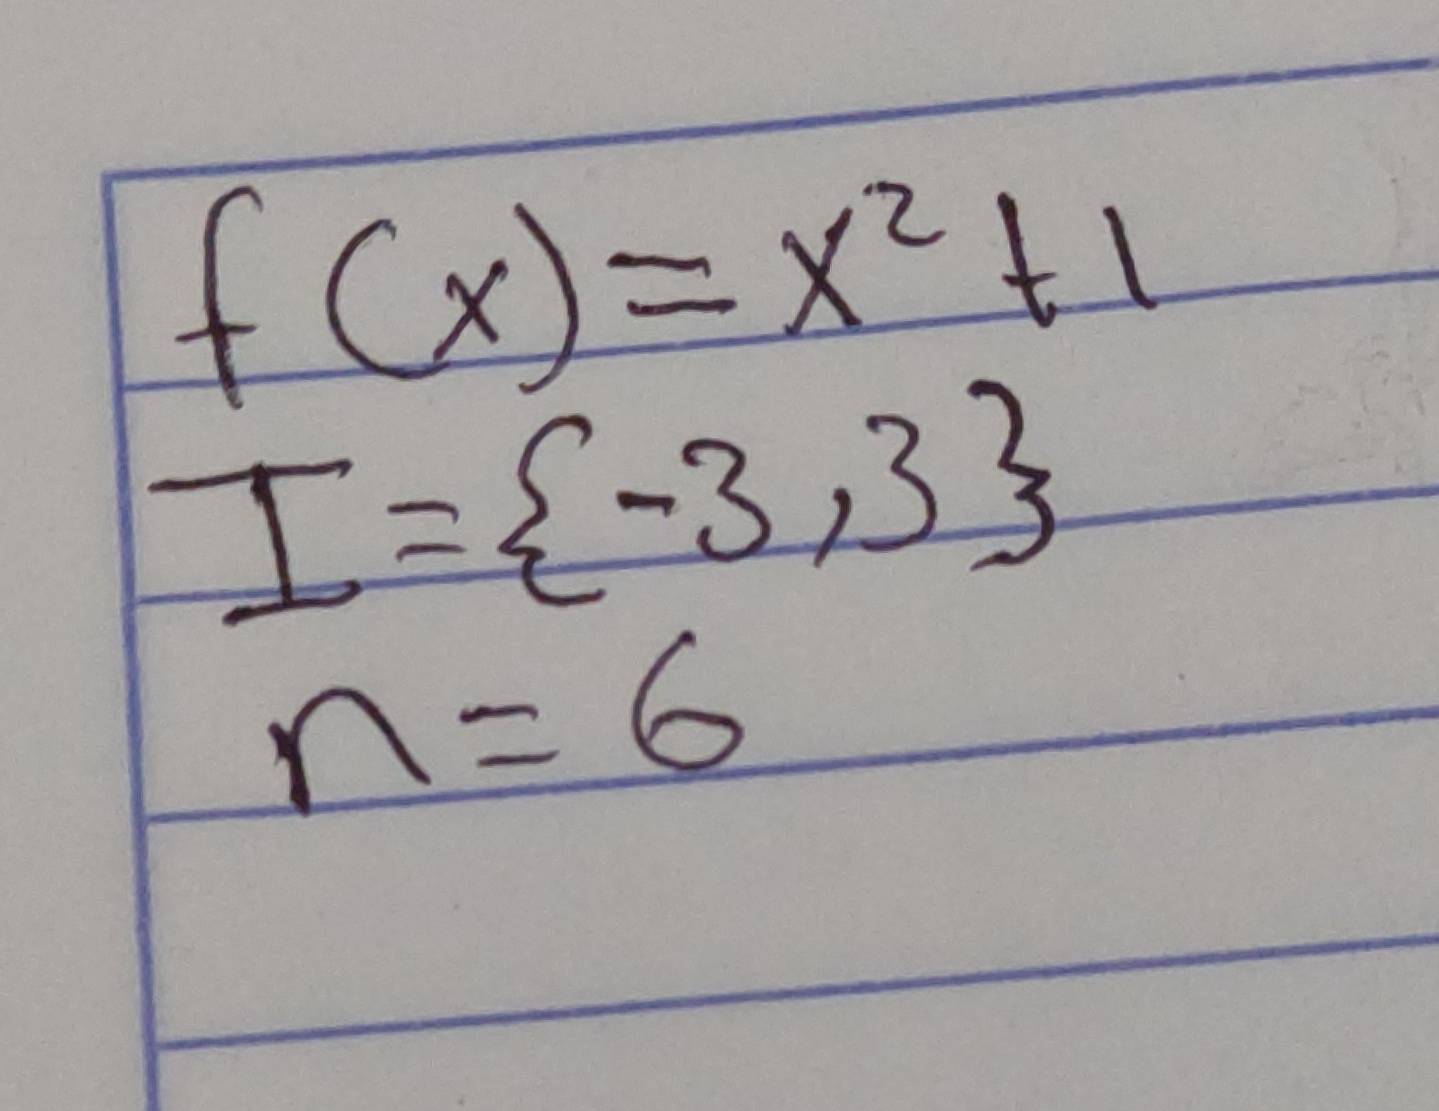 f(x) = x² + 1
I = {-3, 3}
n = 6